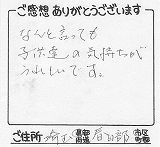 ご感想ありがとうございます
なんと言っても
子供達の気持ちが
うれしいです。
ご住所 埼玉 都道府県 春日部 市区町村